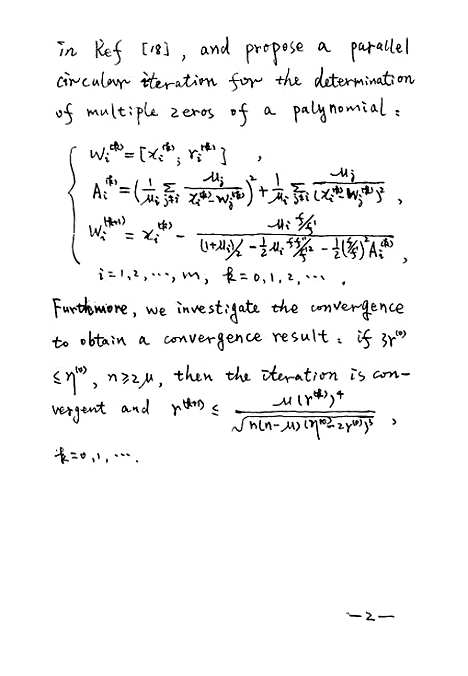 in Ref [18], and propose a parallel
circular iteration for the determination
of multiple zeros of a palynomial:
W_i^{(k)} = [x_i^{(k)}; r_i^{(k)}],
A_i^{(k)} = (1/μ_i Σ_{j≠i} μ_j/(x_i^{(k)} - W_j^{(k)}))^2 + 1/μ_i Σ_{j≠i} μ_j/(x_i^{(k)} - W_j^{(k)})^2,
W_i^{(k+1)} = x_i^{(k)} - (μ_i f/f')/((1+μ_i)/2 - 1/2 μ_i f f''/f'^2 - 1/2 (f/f')^2 A_i^{(k)}),
i=1,2,…,m, k=0,1,2,….
Furthmore, we investigate the convergence
to obtain a convergence result: if 3r^{(0)}
≤ η^{(0)}, n≥2μ, then the iteration is con-
vergent and r^{(k+1)} ≤ μ(r^{(k)})^4/√(n(n-μ)(η^{(0)}-2r^{(0)})^3),
k=0,1,….
—2—